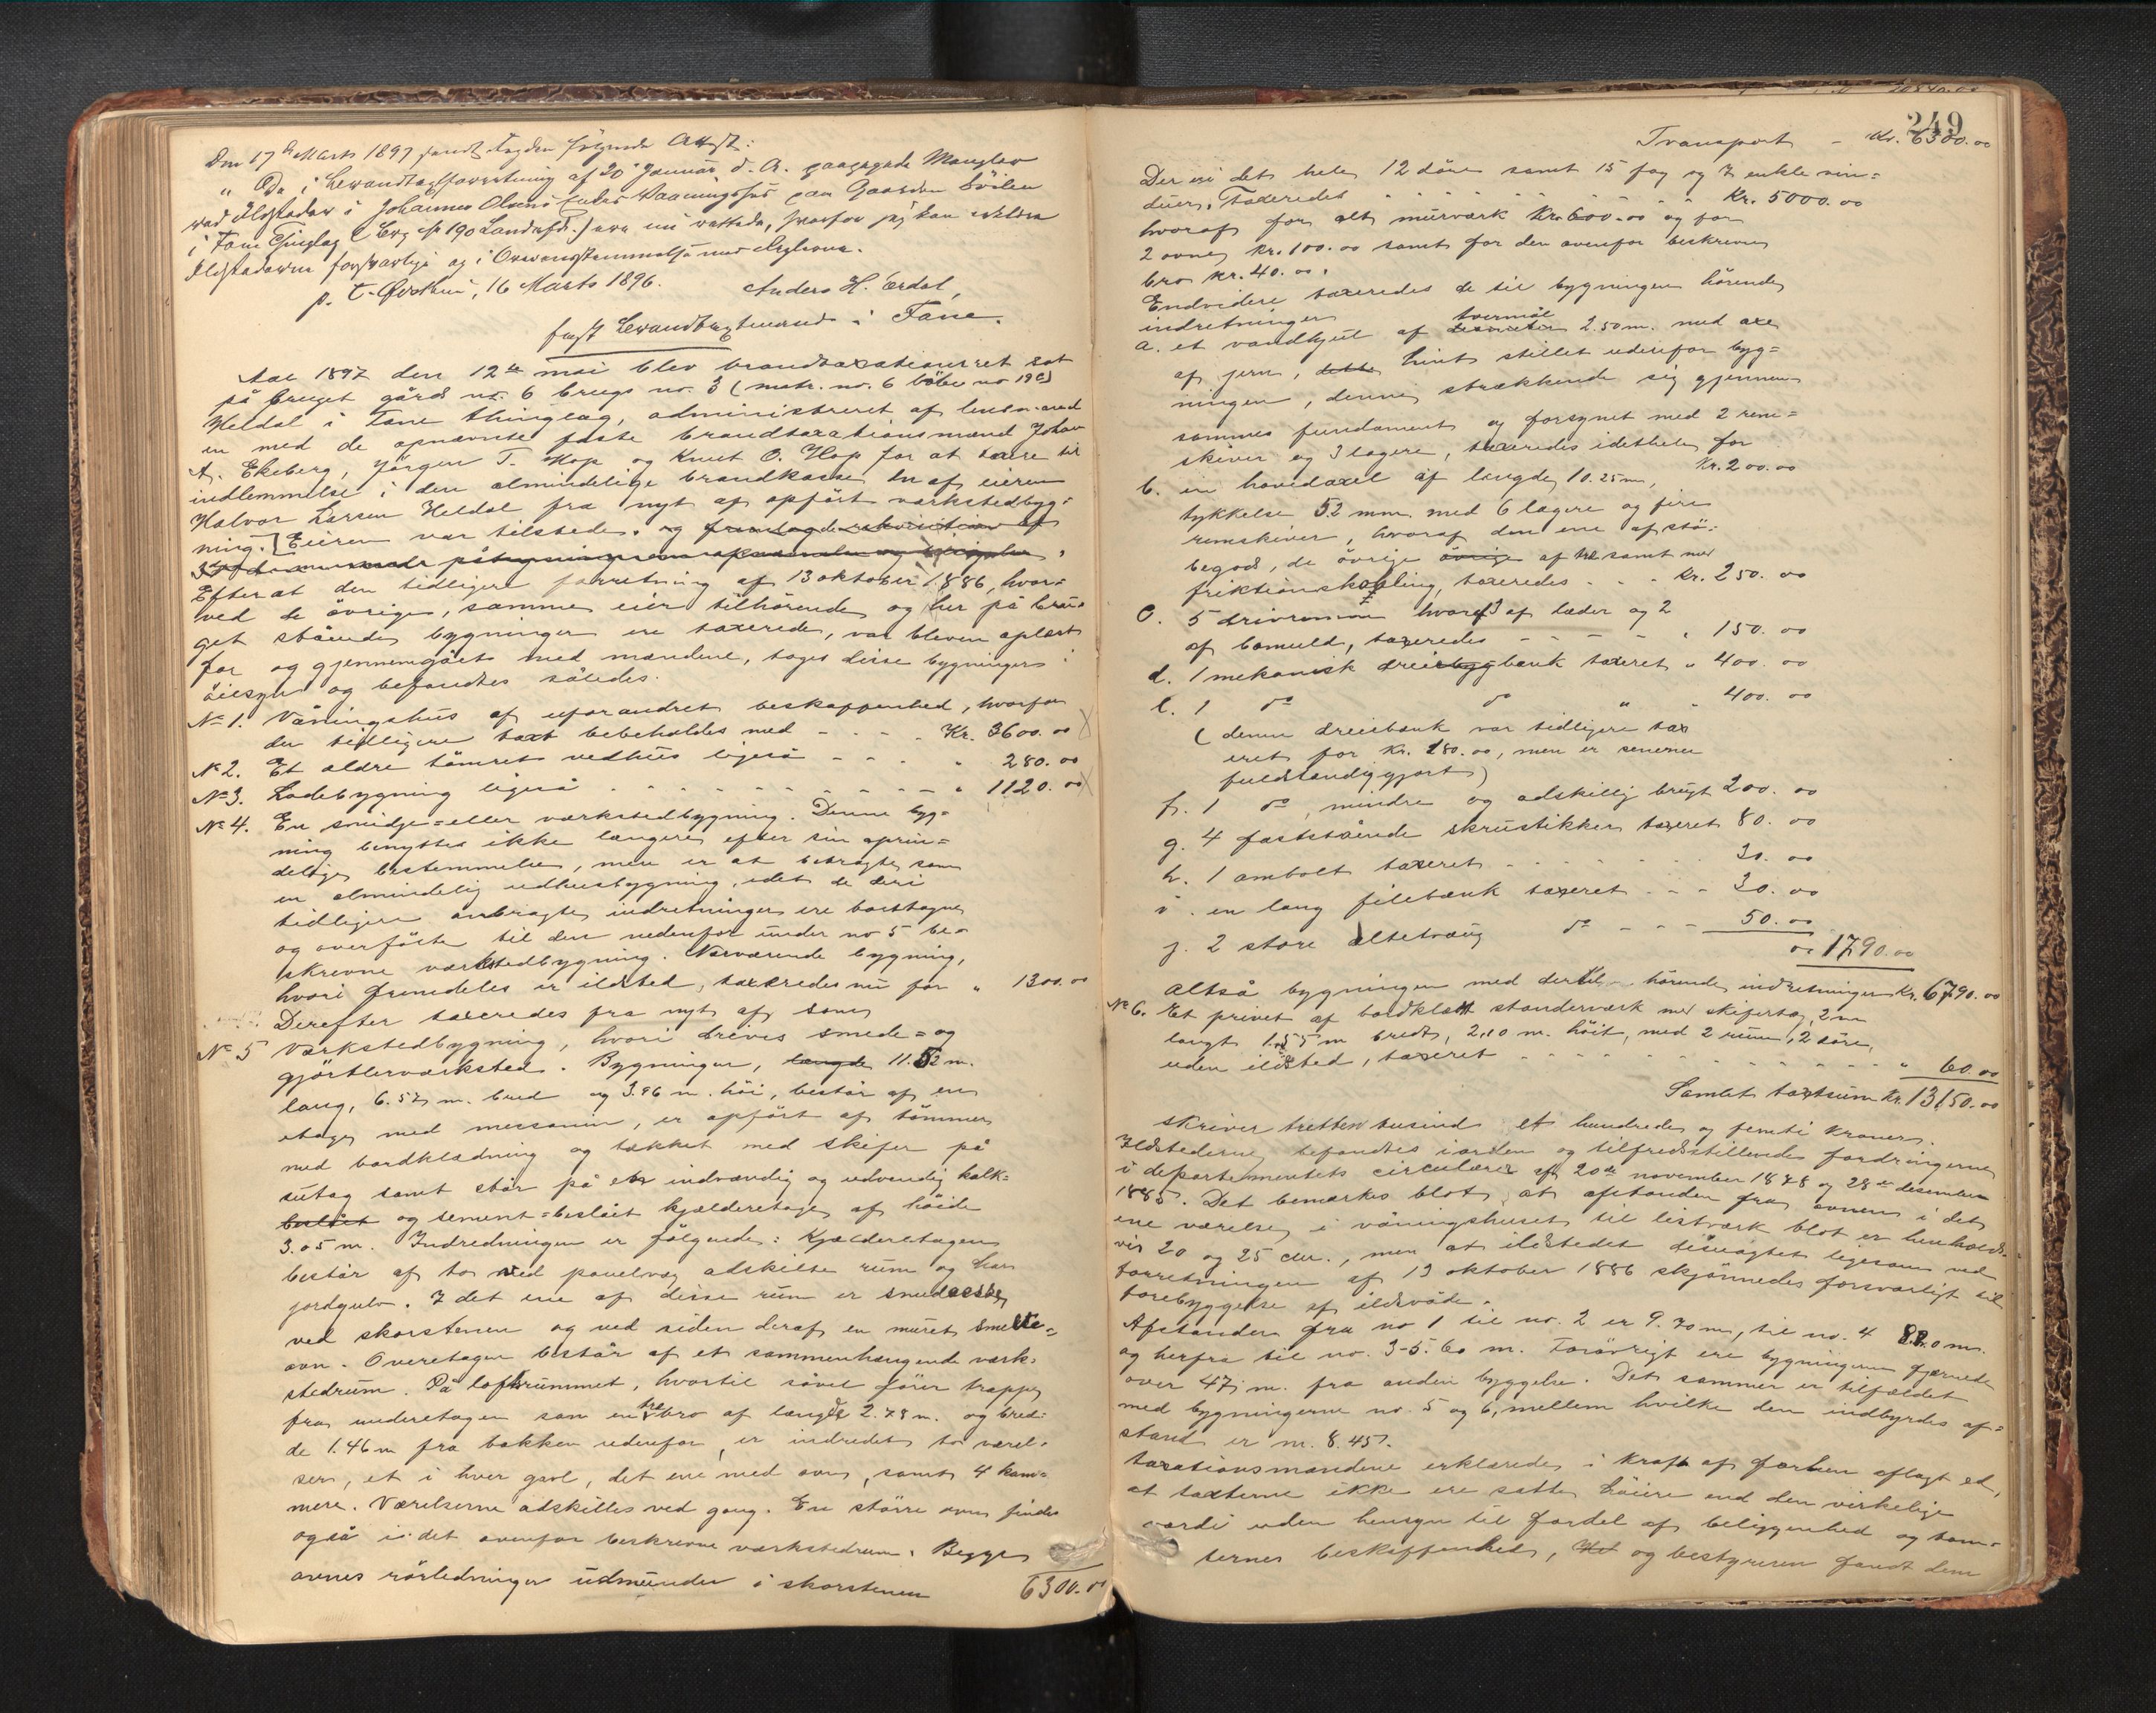 Den 17de Marts 1897 fandt Tagden følgende Attest:
"De i Lensmandtaxtforretning af 20 Januar d. A. paapegede Mangler
ved Ildstedar i Johannes Olsens Vaaningshus paa Gaarden
i Fane Thinglag (Brg № 190 Landafd.) ere nu rettede, hvorfor jeg kan erklære
Ildstederne forsvarlige og i Overensstemmelse med Reglerne.
p. t. 16 Marts 1896. Anders H. Erdal,
fast i Fane.
Aar 1897 den 12te mai blev brandtaxationsret sat
på bruget gårds no. 6 brugs no. 3 (matr. no. 6 löbe no 19c)
Heldal i Fane thinglag, administreret af lensmand-
en med de opnævnte faste brandtaxationsmænd Johan
A. Ekeberg, Jörgen T. Hop og Knut O. Hop for at taxere til
indlemmelse i den almindelige brandkasse en af eieren
Halvor Larsen Heldal fra nyt af opfört værkstedbyg-
ning. Eieren var tilstede. og
Efterat den tidligere forretning af 13 oktober 1886, hvor-
ved de övrige, samme eier tilhörende og her på bru-
get stående bygninger ere taxerede, var bleven oplæst
for og gjennemgået med mændene, toges disse bygninger i
öiesyn og befandtes således:
№ 1. Våningshus af uforandret beskaffenhed, hvorfor
den tidligere taxt bebeholdes med - - - - Kr. 3600.00
№ 2. Et ældre tömret vedhus ligeså - - - " 280.00
№ 3. Ladebygning ligeså - - - - - - " 1120.00
№ 4. En smidje- eller værkstedbygning. Denne byg-
ning benyttes ikke længere efter sin oprin-
delige bestemmelse, men er at betragte som
en almindelig udhusbygning, idet de deri
tidligere anbragte indretninger ere borttagne
og overförte til den nedenfor under no 5 be-
skrevne værkstedbygning. Nærværende bygning,
hvori fremdeles er ildsted, taxeredes nu for " 1300.00
Derefter taxeredes fra nyt af som
№ 5 Værkstedbygning, hvori drives smede- og
gjörtlerværksted. Bygningen, længde 11.52 m.
lang, 6.57 m. bred og 3.96 m. höi, består af en
etage med messanin, er opfört af tömmer
med bordklædning og tækket med skifer på
sutag samt står på en indvændig og udvendig kalk-
beslået og sement-beslået kjælderetage af höide
3.05 m. Indredningen er fölgende: Kjælderetagen
består af to ved panelvæg adskilte rum og har
jordgulv. I det ene af disse rum er smedeesse
ved skorstenen og ved siden deraf en muret smelte-
ovn. Overetagen består af et sammenhængende værk-
stedrum. På loftsrummet, hvortil såvel förer trappe
fra underetagen som en træbro af længde 2.78 m. og bred-
de 1.46 m fra bakken udenfor, er indredet to værel-
ser, et i hver gavl, det ene med ovn, samt 4 kam-
mere. Værelserne adskilles ved gang. En större ovn findes
også i det ovenfor beskrevne værkstedrum. Begge
ovnes rörledninger udmunder i skorstenen 6300.00
249
Transport - Kr. 6300.00
Der er i det hele 12 döre samt 15 fag og 7 enkle vin-
duer. Taxeredes - - - - - Kr. 5000.00
hvoraf for alt murværk Kr. 600.00 og for
2 ovne Kr. 100.00 samt for den ovenfor beskrevne
bro Kr. 40.00.
Endvidere taxeredes de til bygningen hörende
indretninger
a. et vandhjul af diameter tvermål 2.50 m. med axe
af jern, dette hint stillet udenfor byg-
ningen, denne strækkende sig gjennem
sammes fundament og forsynet med 2 rem-
skiver og 3 lagere, taxeredes i det hele for
Kr. 200.00
b. en hovedaxel af længde 10.25 m,
tykkelse 52 mm. med 6 lagere og fire
remskiver, hvoraf den ene af stö-
begods, de övrige övrige af træ samt med
friktionskobling, taxeredes - - - Kr. 250.00
c. 5 drivremme hvoraf 3 af læder og 2
af bomuld, taxeredes - - - - " 150.00
d. 1 mekanisk dreiebænk taxeret " 400.00
e. 1 do do " " 400.00
(denne dreiebænk var tidligere tax
eret for Kr. 280.00, men er senere
fuldstændiggjort)
f. 1 do, mindre og adskillig brugt 200.00
g. 4 faststående skrustikker taxeret 80.00
h. 1 ambolt taxeret - - - - - 30.00
i. en lang filebænk taxeret - - - 30.00
j. 2 store do - - - 50.00
" 1790.00
Altså bygningen med dertil hörende indretninger Kr. 6790.00
№ 6. Et privet af bordklædt standerværk med skifertag, 2 m
langt 1.55 m bredt, 2.10 m. höit, med 2 rum, 2 döre,
uden ildsted, taxeret - - - - - - - " 60.00
Samlet taxtsum Kr. 13150.00
skriver tretten tusind et hundrede og femti Kroner.
Ildstederne befandtes i orden og tilfredsstillende fordringerne
i departementets circulærer af 20de november 1878 og 28de desember
1885. Det bemærkes blot, at afstanden fra ovnen i det
ene værelse i våningshuset til listværk blot er henholds-
vis 20 og 25 cm., men at ildstedet desuagtet ligesom ved
forretningen af 13 oktober 1886 skjönnedes forsvarligt til
forebyggelse af ildsvåde.
Afstanden fra no 1 til no. 2 er 9.70 m, til no. 4 8.80 m.
og herfra til no. 3 - 5.60 m. Forövrigt ere bygningerne fjernede
over 47 m. fra anden byggelse. Det samme er tilfældet
med bygningerne no. 5 og 6, mellem hvilke den indbyrdes af-
stand er m. 8.45.
Taxationsmændene erklærede i kraft af forhen aflagt ed,
at taxterne ikke ere satte höiere end den virkelige
værdi uden hensyn til fordel af beliggenhed og tom-
ternes beskaffenhed, og bestyreren fandt dem